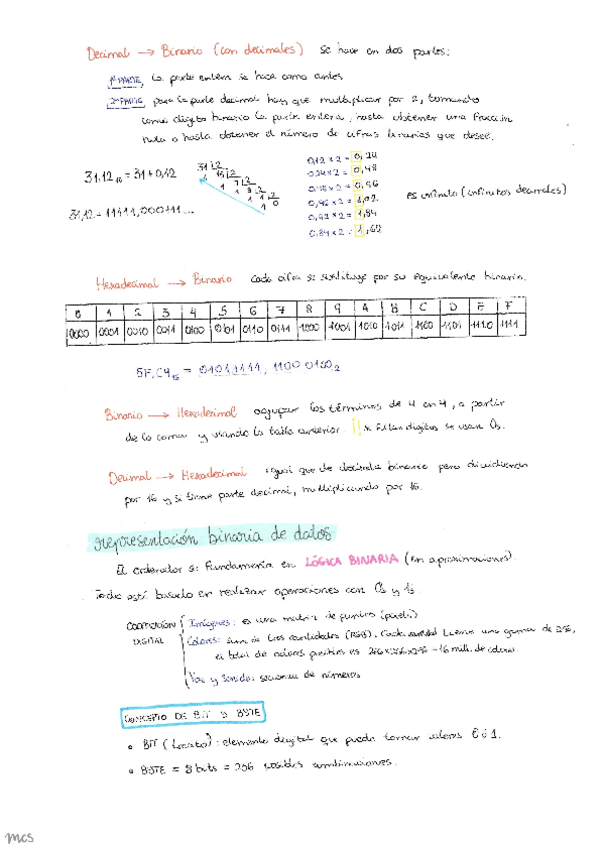 Decimal → Binario (con decimales) se hace en dos partes:
1ª PARTE, la parte entera se hace como antes
2ª PARTE para la parte decimal hay que multiplicar por 2, tomando
como dígito binario la parte entera, hasta obtener una fracción
nula o hasta obtener el número de cifras binarias que desee.
31,12₁₀ = 31 + 0,12
31,12 = 11111,00011...
0,12 x 2 = 0,24
0,24 x 2 = 0,48
0,48 x 2 = 0,96
0,96 x 2 = 1,92
0,92 x 2 = 1,84
0,84 x 2 = 1,68
es infinito (infinitos decimales)
Hexadecimal → Binario Cada cifra se sustituye por su equivalente binario.
0 1 2 3 4 5 6 7 8 9 A B C D E F
0000 0001 0010 0011 0100 0101 0110 0111 1000 1001 1010 1011 1100 1101 1110 1111
5F,C4₁₆ = 01011111, 1100 0100₂
Binario → Hexadecimal agrupar los términos de 4 en 4, a partir
de la coma y usando la tabla anterior. !! si faltan dígitos se usan 0s.
Decimal → Hexadecimal igual que de decimal a binario pero dividiendo
por 16 y si tiene parte decimal, multiplicando por 16.
representación binaria de datos
El ordenador se fundamenta en LÓGICA BINARIA (en aproximaciones).
Todo está basado en realizar operaciones con 0s y 1s
CODIFICACIÓN DIGITAL
Imágenes: es una matriz de puntos (pixels)
Colores: suma de tres cantidades (RGB). Cada cantidad tiene una gama de 256,
el total de colores posibles es 256x256x256 ~ 16 mill. de colores.
Voz y sonido: secuencia de números
CONCEPTO DE BIT Y BYTE
• BIT : elemento digital que puede tomar valores 0 ó 1.
• BYTE = 8 bits = 256 posibles combinaciones.
mcs